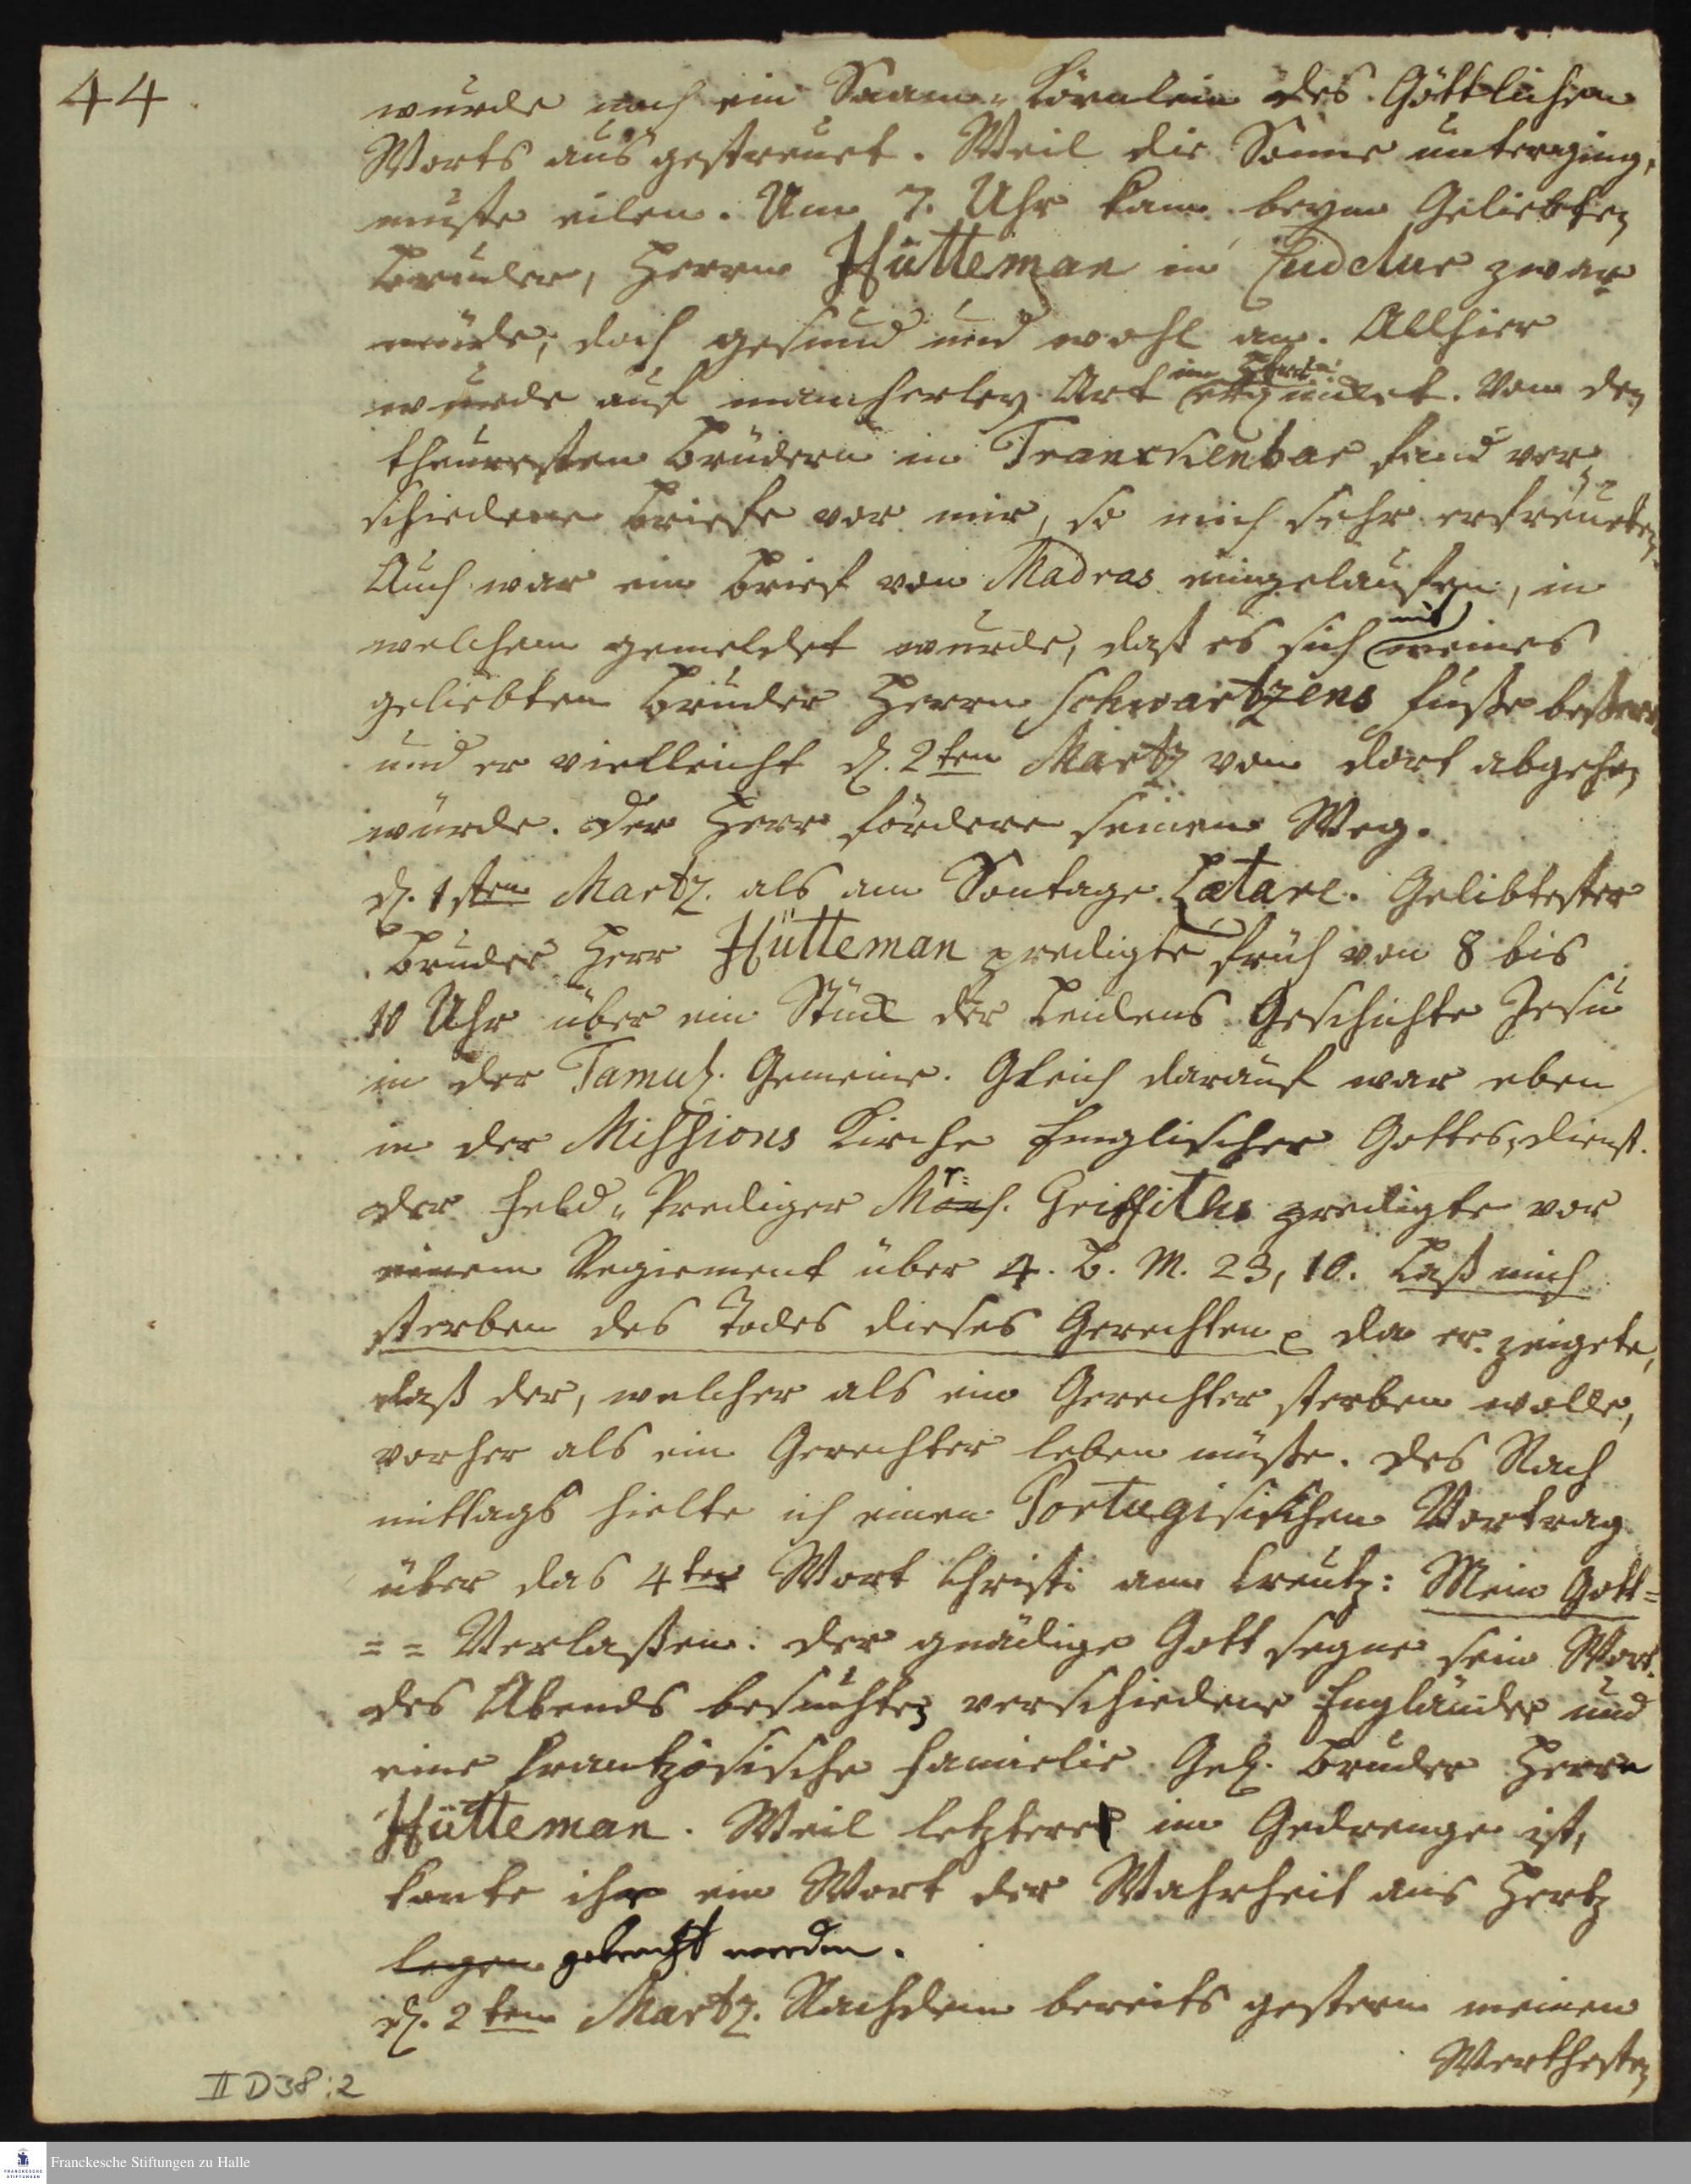 44.
wurde noch ein Saam-Körnlein des Göttlichen
Worts ausgestreuet. Weil die Sonne unterging,
muste eilen. Um 7. Uhr kam beym Geliebten
Bruder, Herrn Hütteman in Cudelur zwar
müde, doch gesund und wohl an. Allhier
im Herrn
wurde auf mancherley Art erquicket. Von den
theuresten Brüdern in Tranckenbar fand ver-
schiedene Briefe vor mir, so mich sehr erfreueten.
Auch war ein Brief von Madras eingelaufen, in
mit
welchem gemeldet wurde, daß es sich meines
geliebten Bruder Herrn Schwartzens Fuße beßere
und er vielleicht d. 2ten Martz von dort abgehen
würde. Der Herr fördere seinen Weg.
d. 1sten Martz. als am Sontage Lætare. Gelibtester
Bruder Herr Hütteman predigte früh von 8 bis
10 Uhr über ein Stück der Leidens Geschichte Jesu
in der Tamul. Gemeine. Gleich darauf war eben
in der Missions Kirche Englischer Gottes-dienst.
Der Feld-Prediger Mr. Griffiths predigte vor
einem Regiement über 4. B. M. 23, 10. Laß mich
sterben des Todes dieses Gerechten, da er zeigete,
daß der, welcher als ein Gerechter sterben wolle,
vorher als ein Gerechter leben müße. Des Nach
mittags hielte ich einen Portugisischen Vortrag
über das 4te Wort Christi am Creutz: Mein Gott=
= = Verlaßen. Der gnädige Gott segne sein Wort.
Des Abends besuchten verschiedene Engländer und
eine Frantzösische Familie Gel. Bruder Herrn
Hütteman. Weil letztere im Gedrenge ist,
konte ihr ein Wort der Wahrheit ans Hertz
legen gebracht werden.
d. 2ten Martz. Nachdem bereits gestern meinen
Werthesten
II D38:2
Franckesche Stiftungen zu Halle
FRANCKESCHE STIFTUNGEN